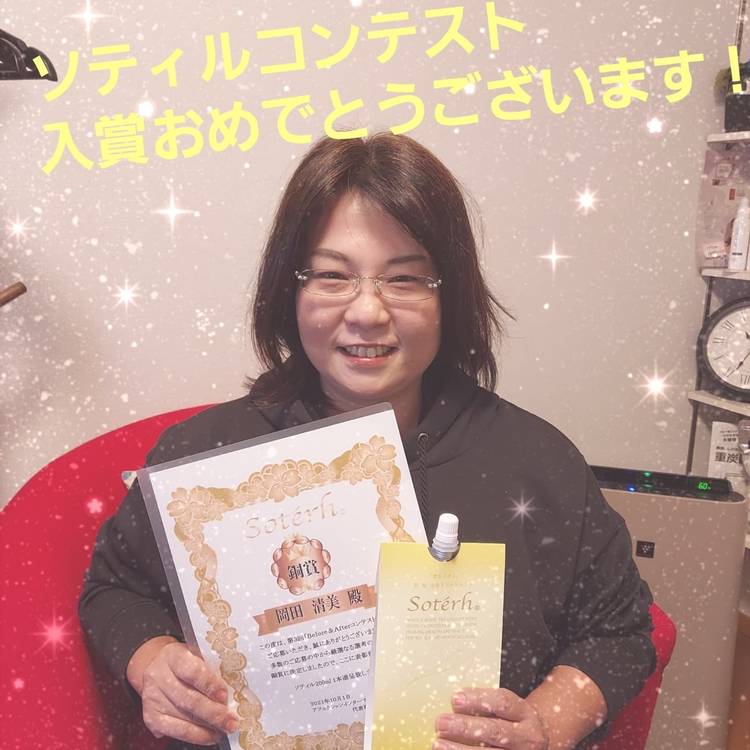 ソティルコンテスト
入賞おめでとうございます!
Sotérh®
銅賞
岡田 清美 殿
この度は、第3回「Before＆Afterコンテスト
ご応募いただき、誠にありがとうございま
多数のご応募の中から厳選なる選考の
銅賞に決定しましたので、ここに表彰
ソティル200ml 1本進呈致し
2021年10月1日
代表
Sotérh®
60
重炭